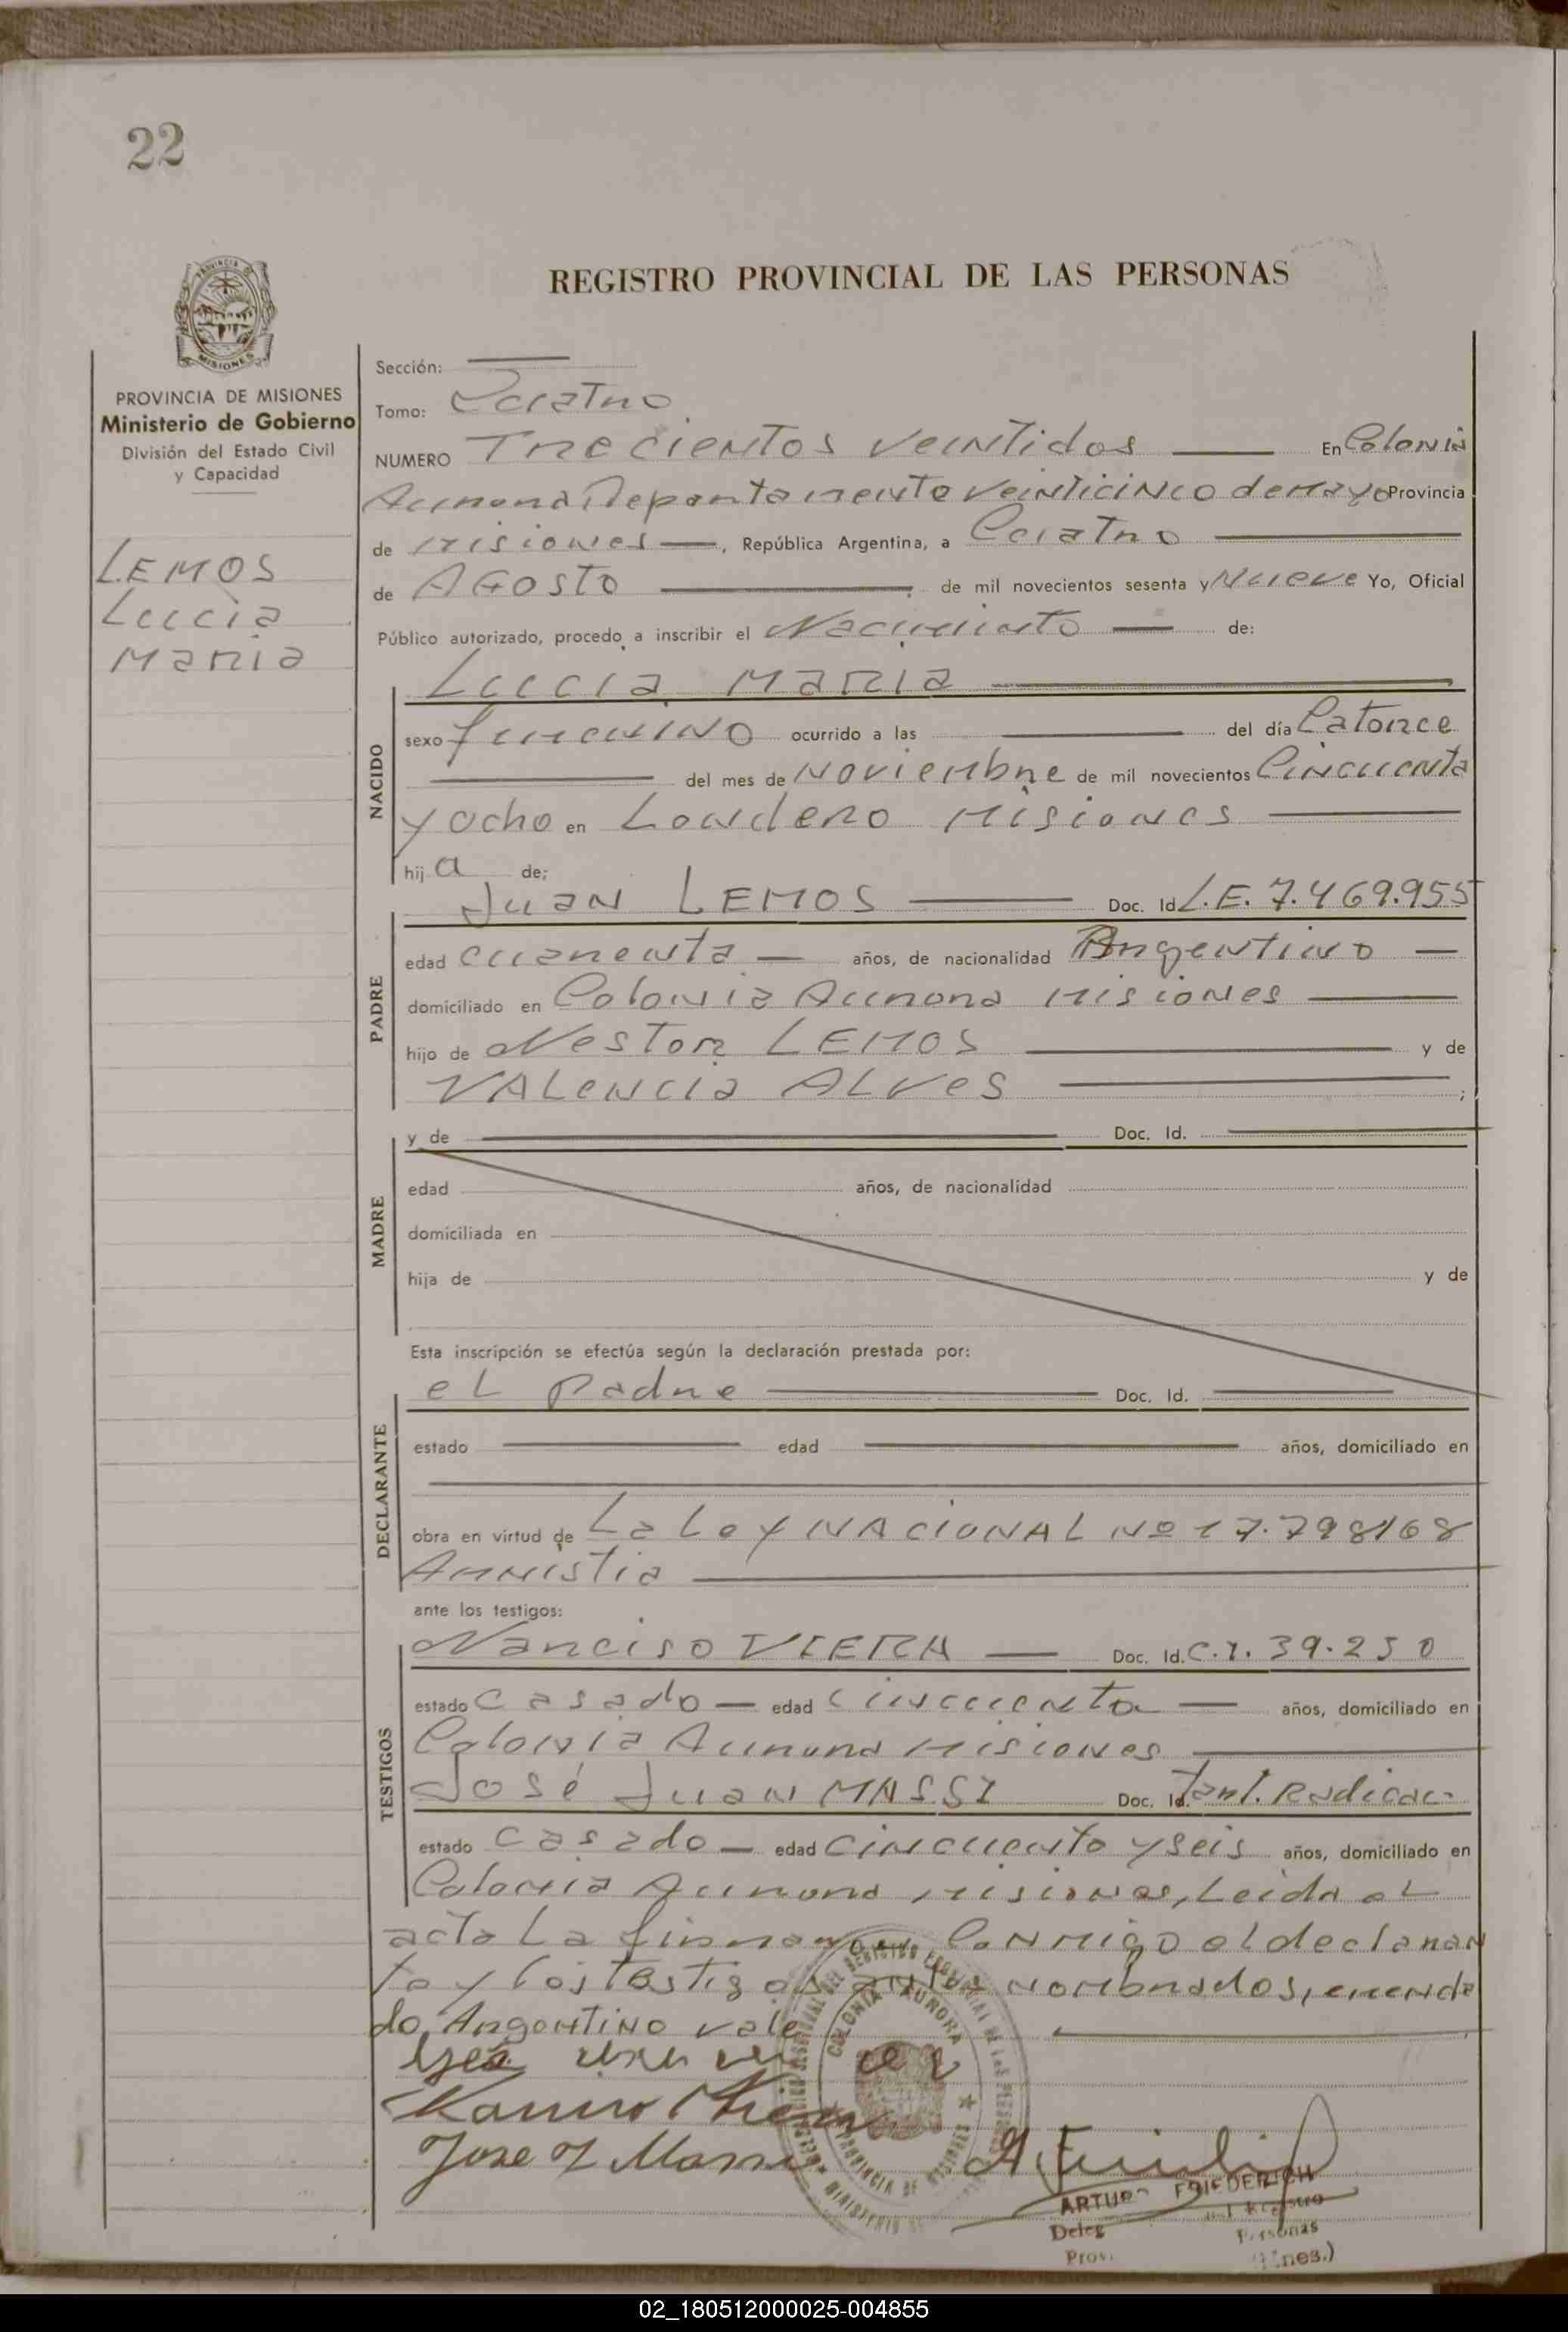 22
REGISTRO PROVINCIAL DE LAS PERSONAS
PROVINCIA DE
MISIONES
PROVINCIA DE MISIONES
Ministerio de Gobierno
División del Estado Civil
y Capacidad
LEMOS
Lucia
Maria
Sección:
Tomo: Cuatro
NUMERO Trecientos veintidos En Colonia
Aurora Departamento veinticinco de Mayo Provincia
de Misiones, República Argentina, a Cuatro
de AGosto de mil novecientos sesenta y Nueve Yo, Oficial
Público autorizado, procedo a inscribir el Nacimiento de:
Lucia Maria
NACIDO
sexo femenino ocurrido a las del día Catorce
del mes de Noviembre de mil novecientos Cincuenta
y ocho en Londero Misiones
hij a de;
PADRE
Juan LEMOS Doc. Id L.E. 7.469.955
edad cuarenta años, de nacionalidad Argentino
domiciliado en Colonia Aurora Misiones
hijo de Nestor LEMOS y de
VALencia ALves ;
MADRE
y de Doc. Id.
edad años, de nacionalidad
domiciliada en
hija de y de
Esta inscripción se efectúa según la declaración prestada por:
DECLARANTE
el Padre Doc. Id.
estado edad años, domiciliado en
obra en virtud de La Ley NACIONAL Nº 17.798/68
Amnistia
ante los testigos:
TESTIGOS
Narciso VIERA Doc. Id. C.I. 39.250
estado casado edad cincuenta años, domiciliado en
Colonia Aurora Misiones
José Juan MASSI Doc. Id. Tant. Radicac.
estado casado edad cincuento y seis años, domiciliado en
Colonia Aurora Misiones, Leida el
acta La firman Conmigo el declaran
te y los testigos antes nombrados, enenda
do, Argentino vale
COLONIA AURORA
PROVINCIA DE MISIONES
Jose J Massi
ARTURO FRIEDERICH
Deleg. del Registro
Prov. Personas
(Mnes.)
02_180512000025-004855